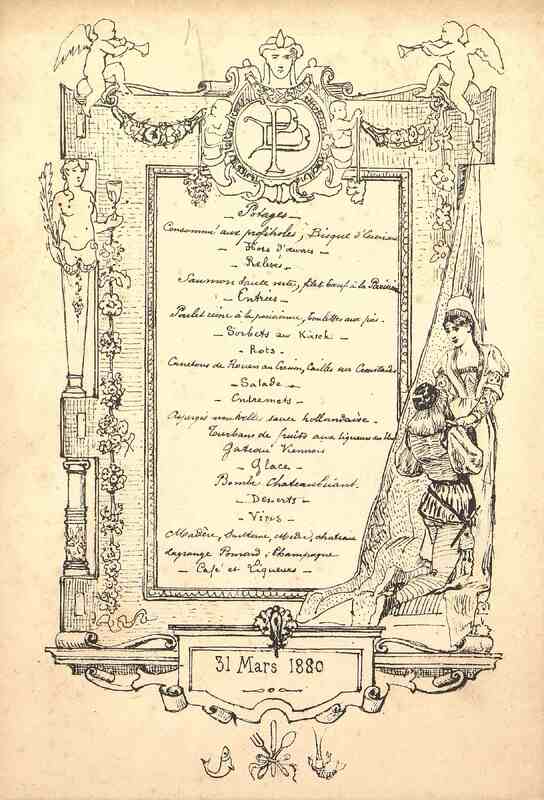 PB
— Potages —
Consommé aux profiteroles, Bisque d'Ecrevisses
— Hors d'œuvres —
— Relevés —
Saumon sauce verte, filet bœuf à la Parisienne
— Entrées —
Poulet reine à la parisienne, aux pois.
— Sorbets au Kirsch —
— Rots —
Canetons de Rouen au Cresson, Cailles sur Croustades
— Salade —
— Entremets —
Asperges nouvelles sauce hollandaise.
Turbans de fruits aux liqueurs
Gateau Viennois
— Glace —
Bombe Chateaubriant.
— Desserts —
— Vins —
Madère, Sauterne, Médoc, chateau
Lagrange Pomard, Champagne
— Café et Liqueurs —
31 Mars 1880